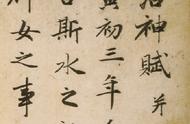 洛神賦 并
黃初三年
言斯水之
神女之事